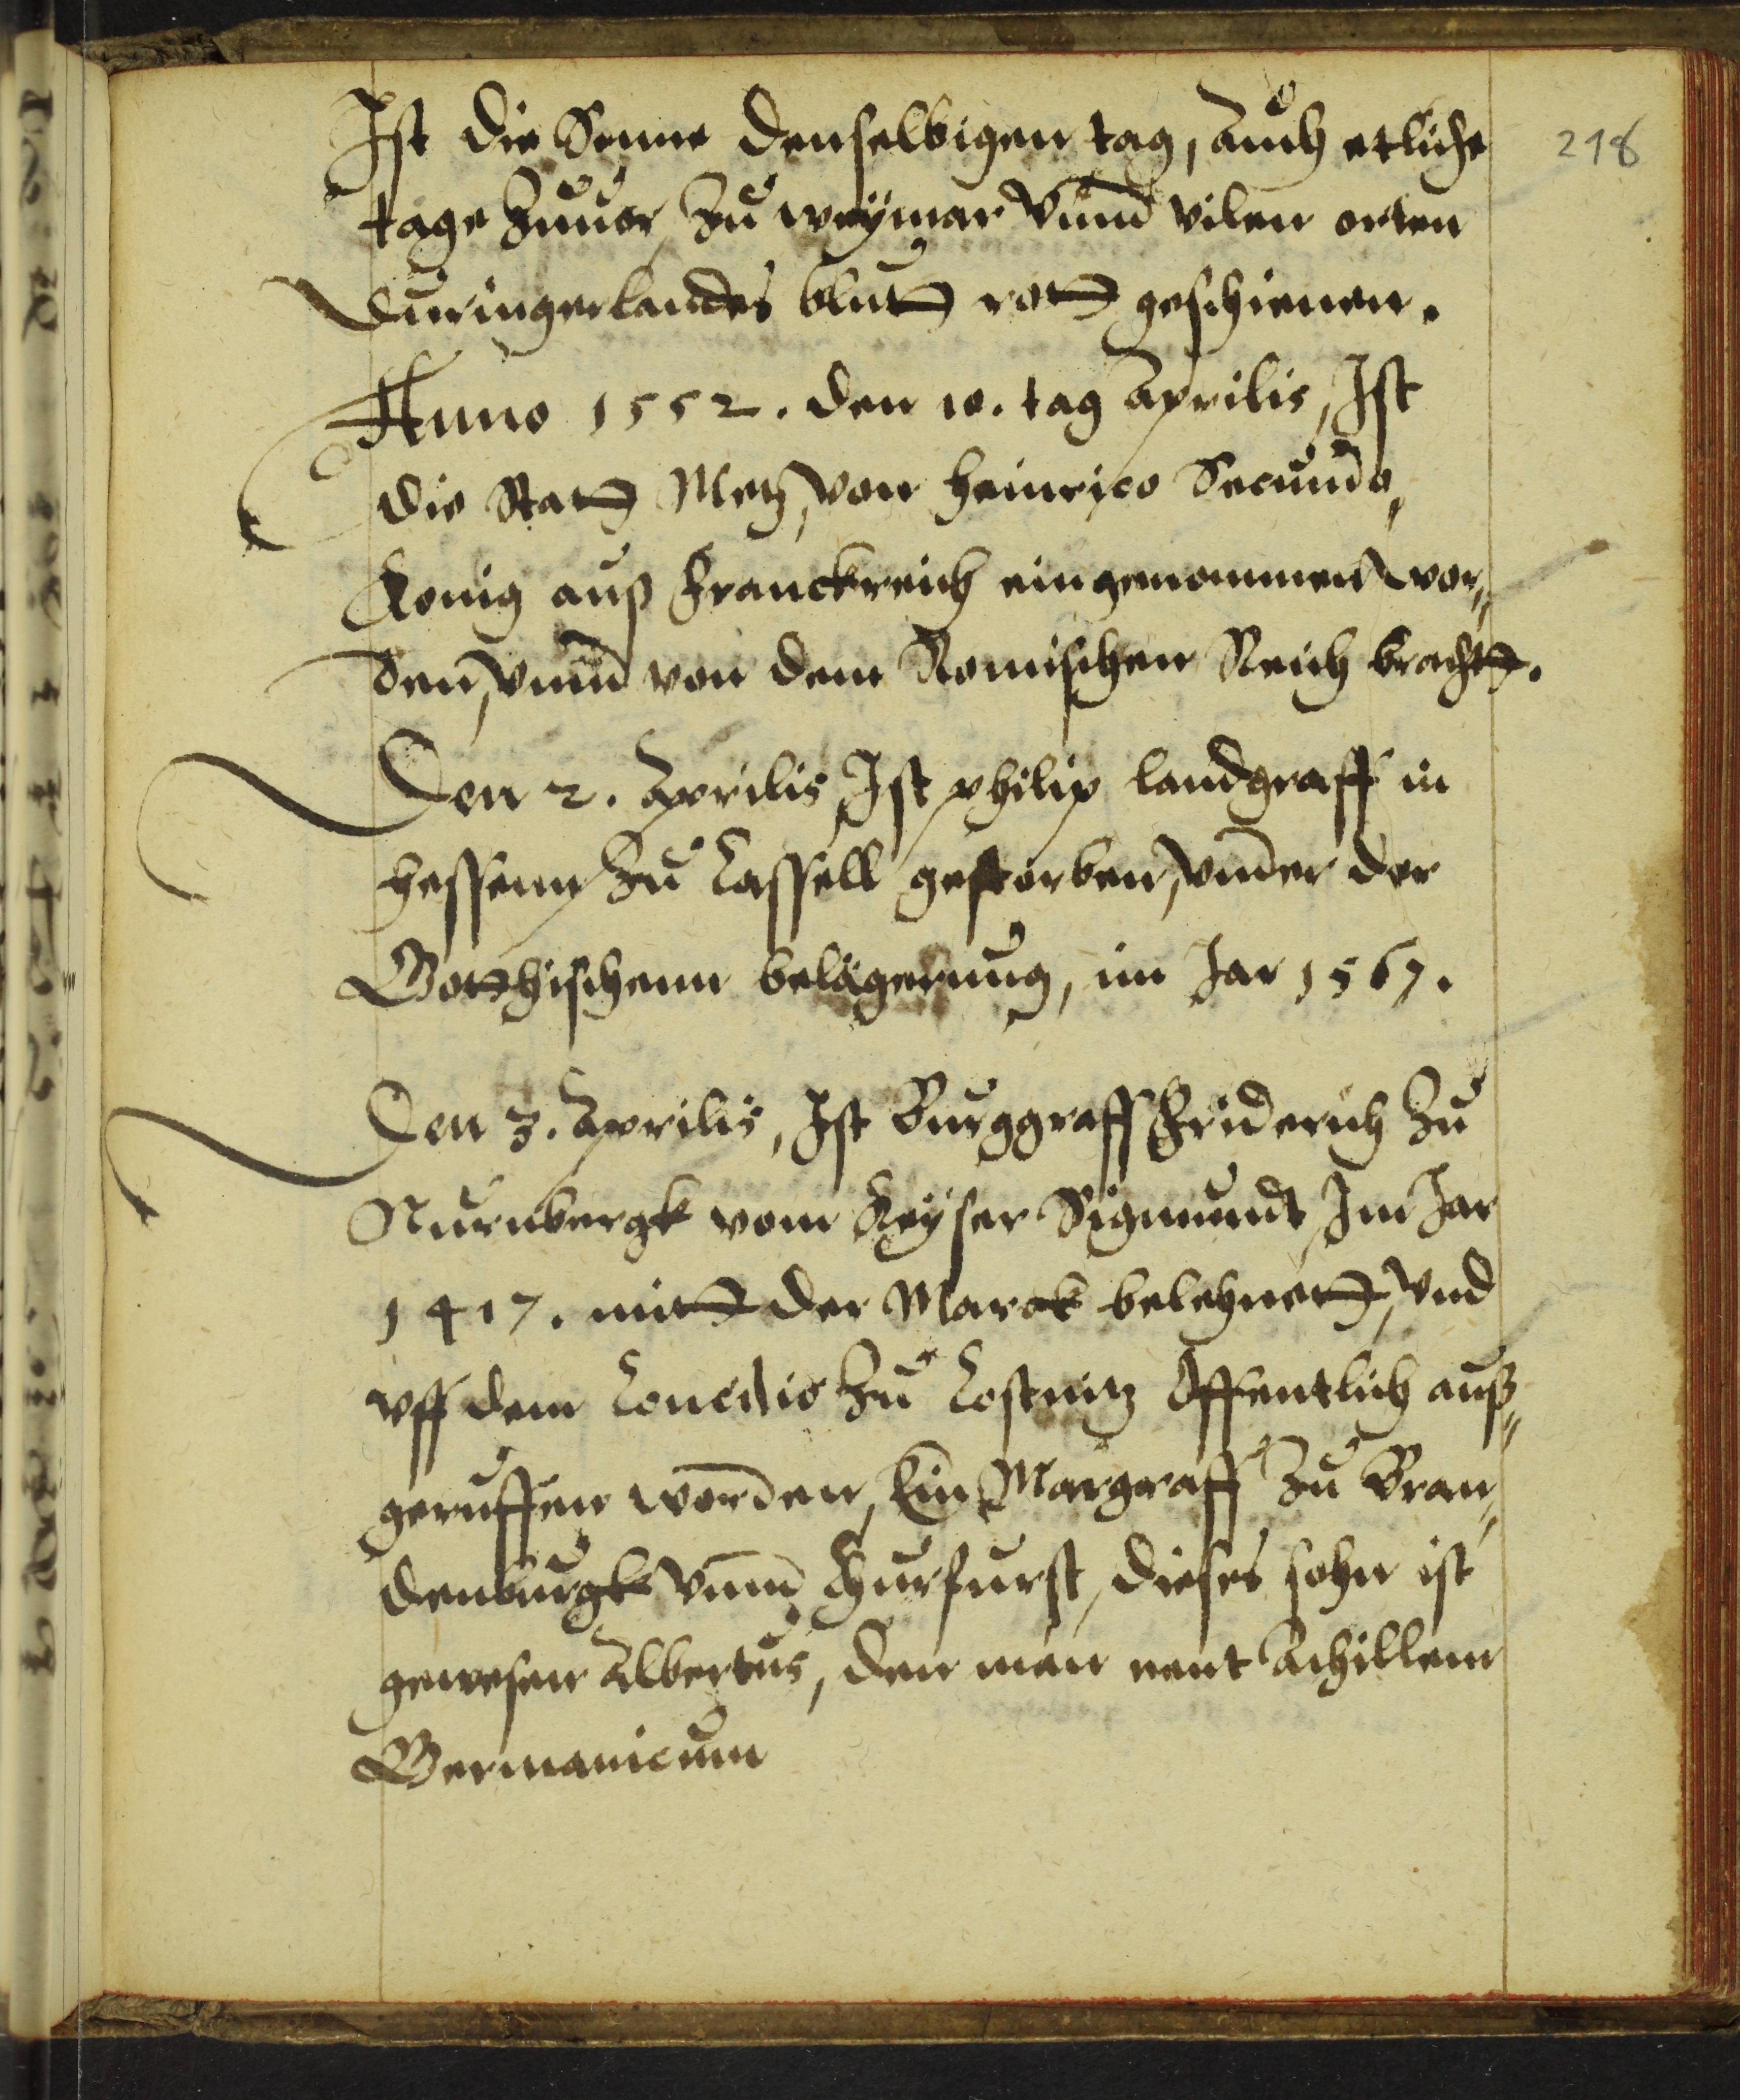 Ist die Sonne denselbigen tag, auch etliche
218
tage zuuor zu weÿmar vnnd vilen orten
düringerlandes blutt rott geschienen.
Anno 1552. den 10. tag Aprilis, Ist
die Statt Metz, von Heinrico Secundo,
Konig auß Franckreich eingenommen wor„
den, vnnd von dem Romischen Reich bracht.
Den 2. Aprilis Ist philip landgraff in
hessenn zu Cassell gestorben, vnder der
Gotthischenn belägerung, im Jar 1567.
Den 3. Aprilis, Ist Burggraff Friderich zu
Nurnbergk vom Keÿser Sigmundt, Im Jar
1417. mitt der Marck belehnett, vnd
vff dem Concilio zu Costnitz Offentlich auß„
geruffen worden, Ein Margraff zu Bran„
denburgk vnnd Churfurst, dieses sohn ist
gewesen Albertus, den man nent Achillem
Germanicum